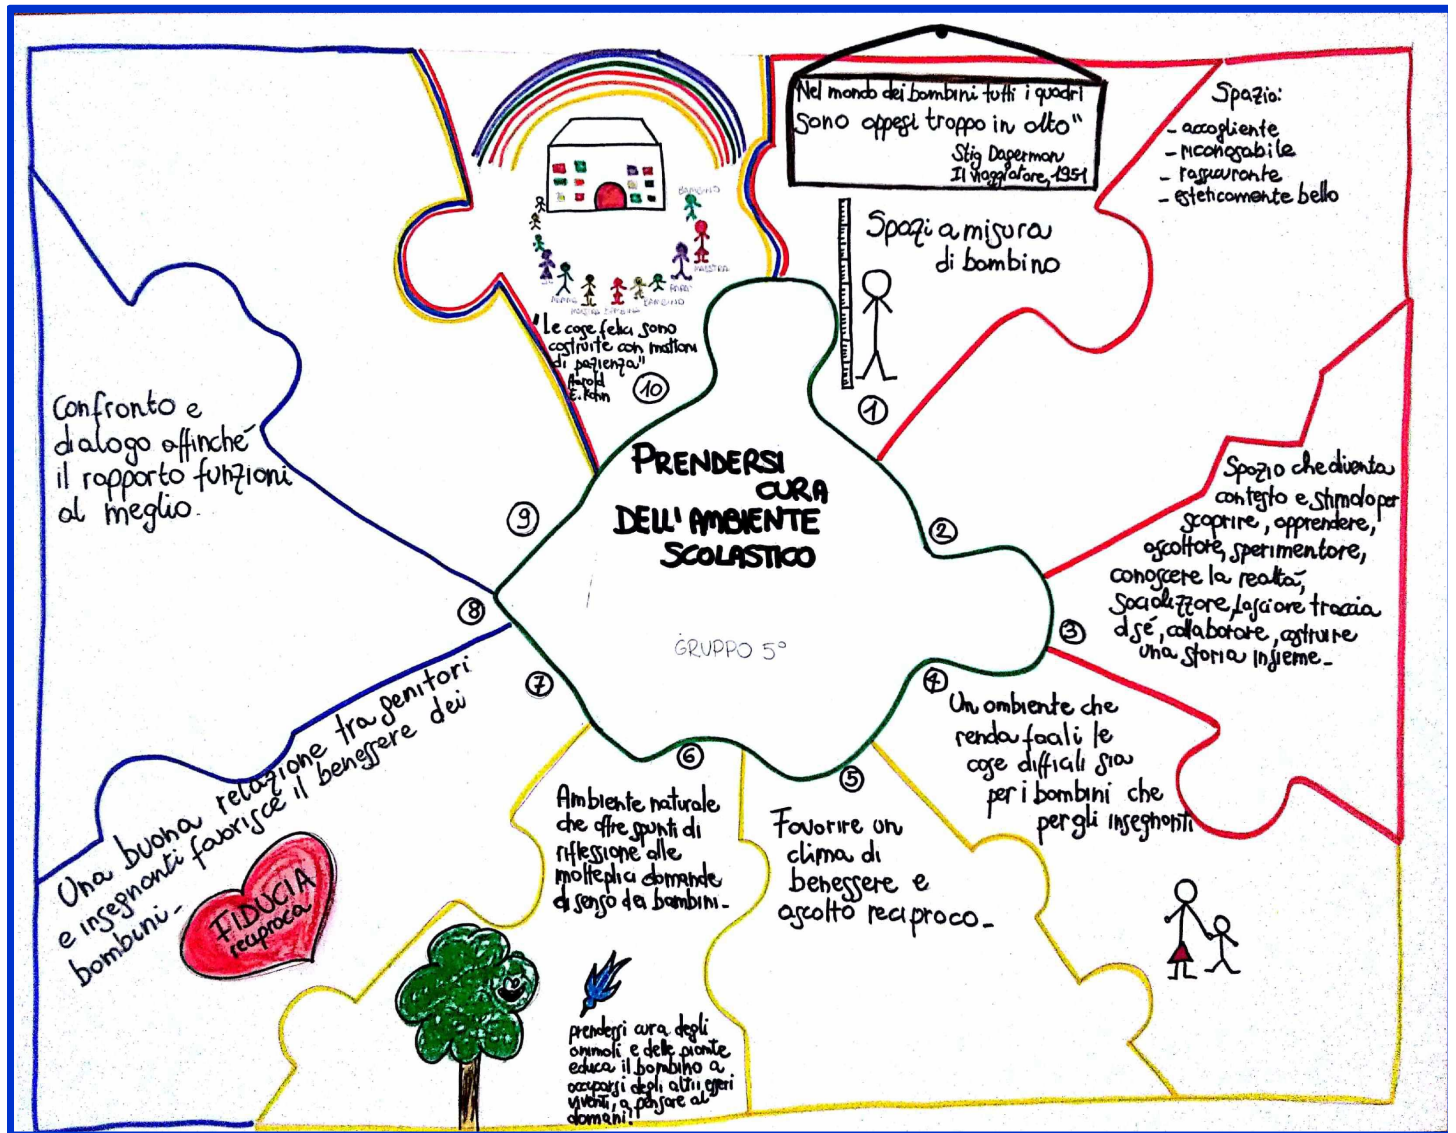 PRENDERSI
CURA
DELL'AMBIENTE
SCOLASTICO
GRUPPO 5°
"Nel mondo dei bambini tutti i quadri
sono appesi troppo in alto"
Stig Dagerman
Il viaggiatore, 1951
Spazi a misura
di bambino
1
Spazio:
- accogliente
- riconoscibile
- rassicurante
- esteticamente bello
2
Spazio che diventa
contesto e stimolo per
scoprire, apprendere,
ascoltare, sperimentare,
conoscere la realtà,
socializzare, lasciare traccia
di sé, collaborare, costruire
una storia insieme-
3
4
Un ambiente che
renda facili le
cose difficili sia
per i bambini che
per gli insegnanti
5
Favorire un
clima di
benessere e
ascolto reciproco-
6
Ambiente naturale
che offre spunti di
riflessione alle
molteplici domande
di senso dei bambini-
prendersi cura degli
animali e delle piante
educa il bambino a
occuparsi degli altri esseri
viventi, a pensare al
domani!
7
Una buona relazione tra genitori
e insegnanti favorisce il benessere dei
bambini-
FIDUCIA
reciproca
8
Confronto e
dialogo affinché
il rapporto funzioni
al meglio.
9
BAMBINO
MAESTRA
PAPA'
BAMBINO
BAMBINA
"Le cose felici sono
costruite con mattoni
di pazienza"
Harold
E. Kohn
10